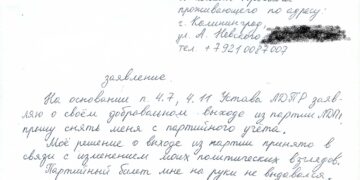 проживающего по адресу:
г. Калининград,
ул. А. Невского
тел. +79210087007
заявление.
На основании п. 4.7, 4.11 Устава ЛДПР заяв-
ляю о своём добровольном выходе из партии ЛДПР,
прошу снять меня с партийного учёта.
Моё решение о выходе из партии принято в
связи с изменением моих политических взглядов.
Партийный билет мне на руки не выдавался.